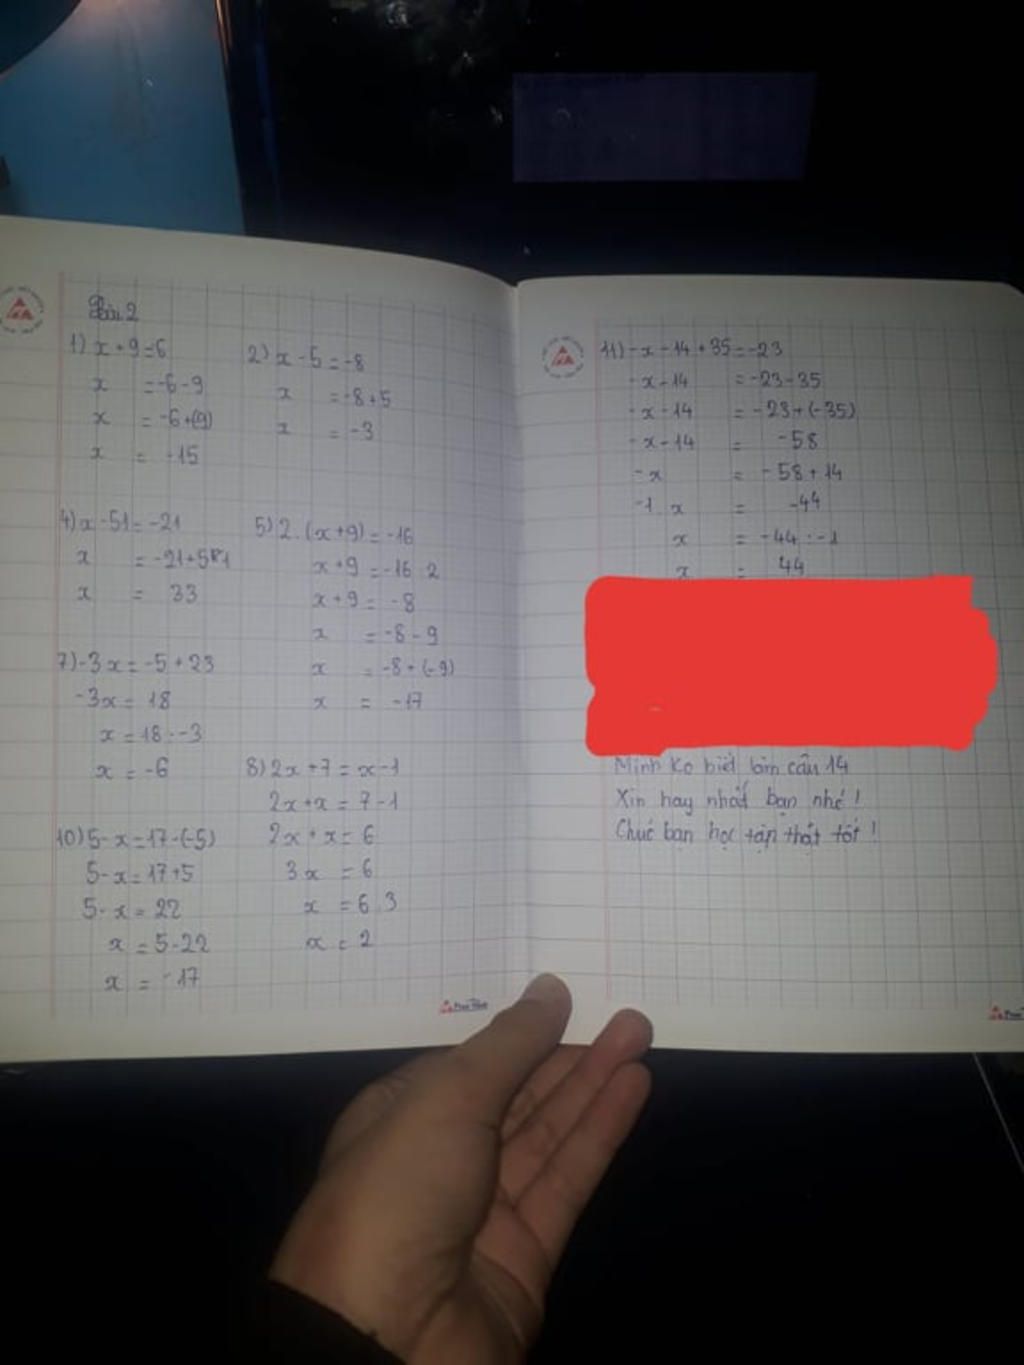 Bài 2
1) x + 9 = 6
x = -6 - 9
x = -6 + (9)
x = -15
2) x - 5 = -8
x = -8 + 5
x = -3
4) x - 51 = -21
x = -21 + 51
x = 33
5) 2. (x + 9) = -16
x + 9 = -16 : 2
x + 9 = -8
x = -8 - 9
x = -8 + (-9)
x = -17
7) -3x = -5 + 23
-3x = 18
x = 18 : -3
x = -6
8) 2x + 7 = x - 1
2x + x = 7 - 1
2x + x = 6
3x = 6
x = 6 : 3
x = 2
10) 5 - x = 17 - (-5)
5 - x = 17 + 5
5 - x = 22
x = 5 - 22
x = -17
11) -x - 14 + 35 = -23
-x - 14 = -23 - 35
-x - 14 = -23 + (-35)
-x - 14 = -58
-x = -58 + 14
-1. x = -44
x = -44 : -1
x = 44
Mình ko biết làm câu 14
Xin hay nhất bạn nhé !
Chúc bạn học tập thật tốt !